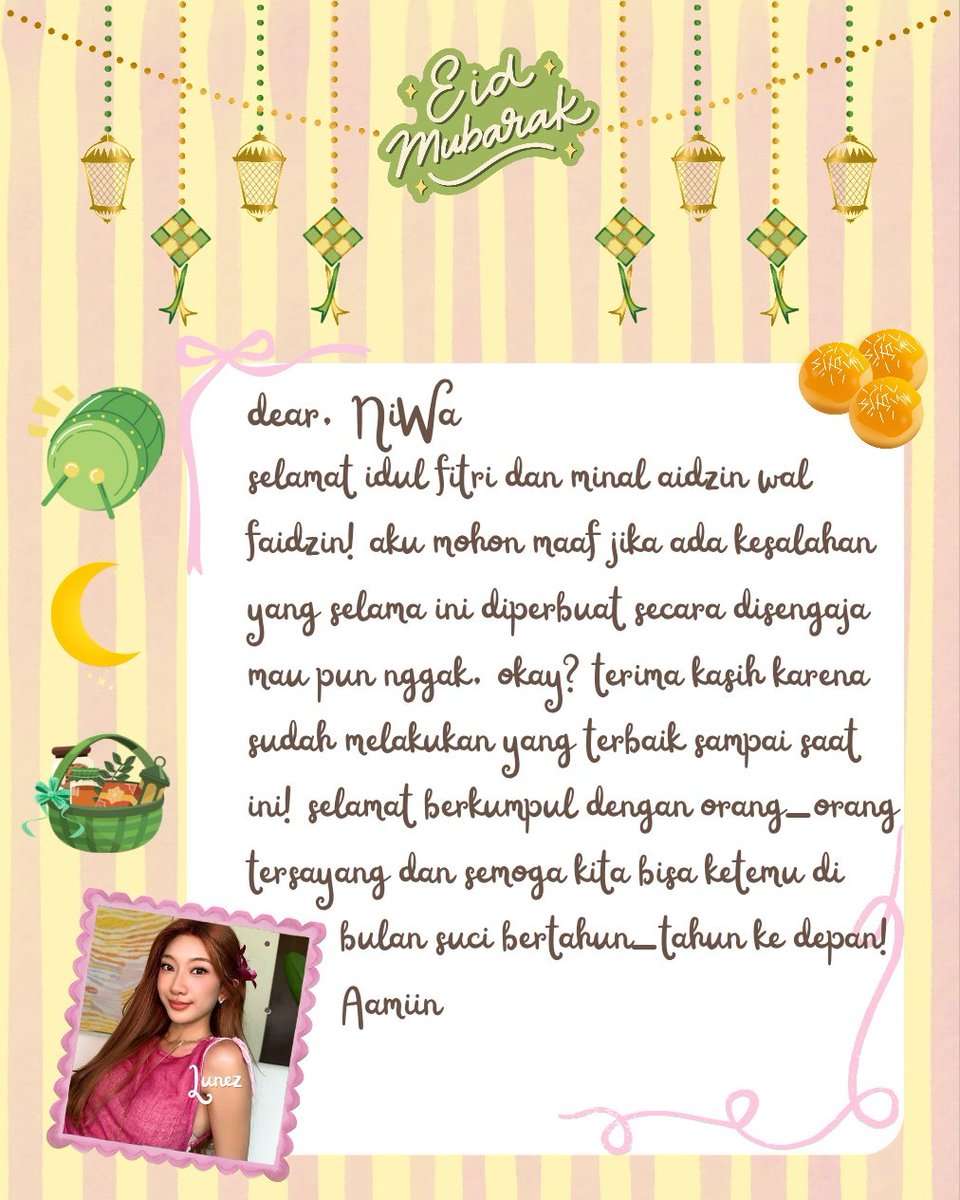 Eid
Mubarak
dear, NiWa
selamat idul fitri dan minal aidzin wal
faidzin! aku mohon maaf jika ada kesalahan
yang selama ini diperbuat secara disengaja
mau pun nggak, okay? terima kasih karena
sudah melakukan yang terbaik sampai saat
ini! selamat berkumpul dengan orang_orang
tersayang dan semoga kita bisa ketemu di
bulan suci bertahun_tahun ke depan!
Aamiin
Lunez